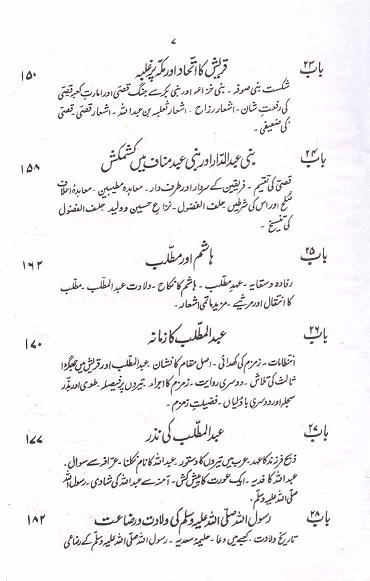 ۷
باب ۲۳ قریش کا اتحاد اور مکہ پر غلبہ ۱۵۰
شکست بنی صوفہ ۔ بنی خزاعہ اور بنی بکر سے جنگ قصٰی اور امارت کعبہ قصٰی
کی رفعت شان ۔ اشعار رزاح ۔ اشعار ثعلبہ بن عبد اللہ ۔ اشعار قصٰی ۔ قصٰی
کی ضعیفی ۔
باب ۲۴ بنی عبد الدار اور بنی عبد مناف میں کشمکش ۱۵۸
قصٰی کی تقسیم ۔ فریقین کے سردار اور طرف دار ۔ معاہدہ مطیبین ۔ معاہدہ احلاف
صلح اور اس کی شرطیں حلف الفضول ۔ نزاع حسین و ولید حلف الفضول
کی تنسیخ ۔
باب ۲۵ ہاشم اور مطلب ۱۶۲
رفادہ و سقایہ ۔ عہد مطلب ۔ ہاشم کا نکاح ۔ ولادت عبد المطلب ۔ مطلب
کا انتقال اور مرثیے ۔ مزید ماتمی اشعار ۔
باب ۲۶ عبد المطلب کا زمانہ ۱۷۰
انتظامات ۔ زمزم کی کھدائی ۔ اصل مقام کا نشان ۔ عبد المطلب اور قریش میں جھگڑا
ثالث کی تلاش ۔ دوسری روایت ۔ زمزم کا اجراء ۔ تیروں پر فیصلہ ۔ طوی اور بذر
سجلہ اور دوسری باؤلیاں ۔ فضیلت زمزم ۔
باب ۲۷ عبد المطلب کی نذر ۱۷۷
ذبح فرزند کا عہد ۔ عرب میں تیروں کا دستور ۔ عبد اللہ کا نام نکلنا ۔ عرافہ سے سوال ۔
عبد اللہ کا فدیہ ۔ ایک عورت کا پیش کش ۔ آمنہ سے عبد اللہ کی شادی ۔ رسول اللہ
صلی اللہ علیہ وسلم ۔
باب ۲۸ رسول اللہ صلی اللہ علیہ وسلم کی ولادت و رضاعت ۱۸۲
تاریخ ولادت ۔ کعبے میں دعا ۔ حلیمہ سعدیہ ۔ رسول اللہ صلی اللہ علیہ وسلم کے رضاعی